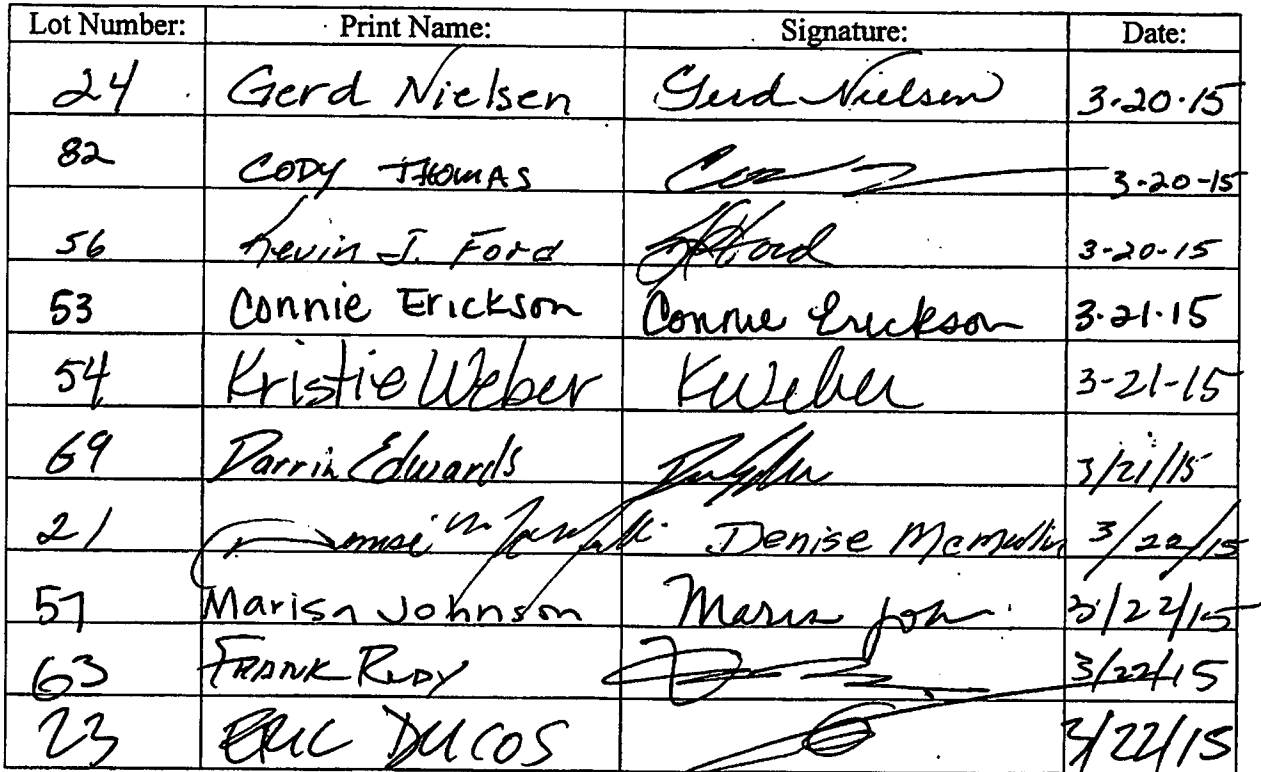 Lot Number: Print Name: Signature: Date:
24 Gerd Nielsen Gerd Nielsen 3-20-15
82 CODY THOMAS 3-20-15
56 Kevin J. Ford 3-20-15
53 Connie Erickson Connie Erickson 3-21-15
54 Kristie Weber KWeber 3-21-15
69 Darrin Edwards 3/21/15
21 Denise Mcmullin 3/22/15
57 Marisa Johnson 3/22/15
63 FRANK RUDY 3/22/15
23 ERIC DUCOS 3/22/15